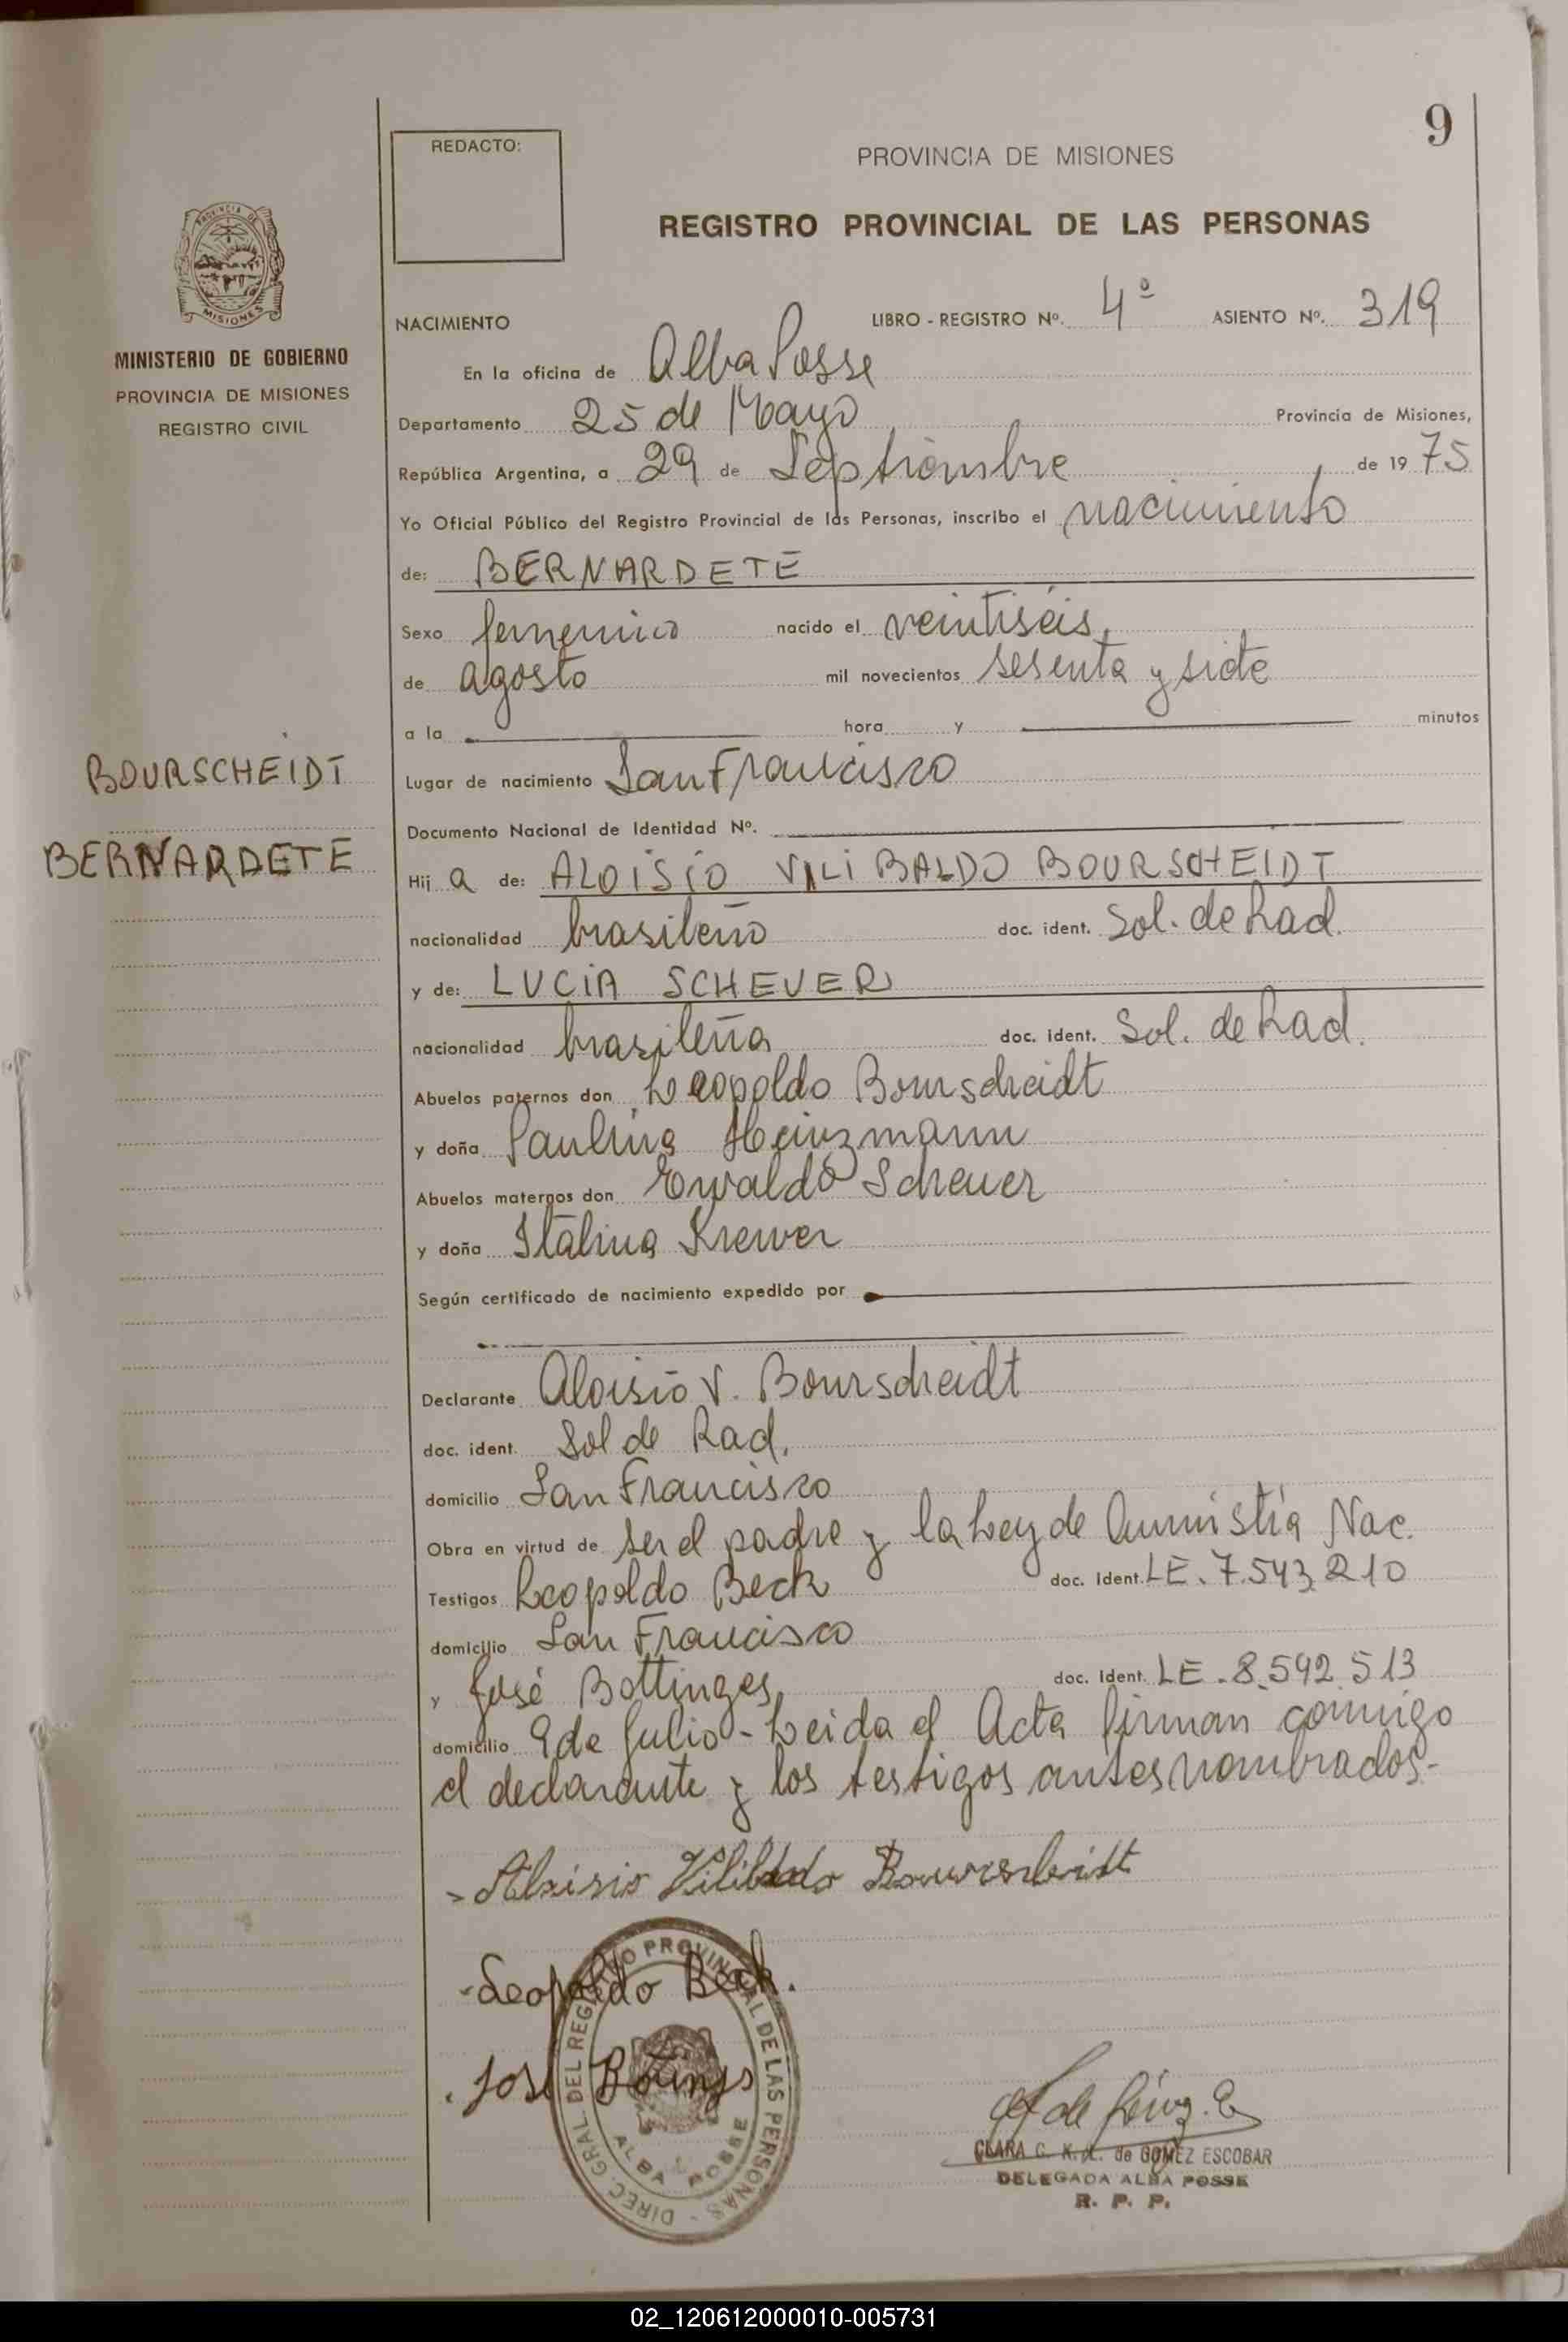 9
REDACTO:
PROVINCIA DE MISIONES
REGISTRO PROVINCIAL DE LAS PERSONAS
PROVINCIA DE
MISIONES
MINISTERIO DE GOBIERNO
PROVINCIA DE MISIONES
REGISTRO CIVIL
NACIMIENTO LIBRO - REGISTRO Nº. 4º ASIENTO Nº. 319
En la oficina de Alba Posse
Departamento 25 de Mayo Provincia de Misiones,
República Argentina, a 29 de Septiembre de 19 75
Yo Oficial Público del Registro Provincial de las Personas, inscribo el nacimiento
de: BERNARDETE
Sexo femenino nacido el veintiséis,
de agosto mil novecientos sesenta y siete
a la hora y minutos
BOURSCHEIDT
Lugar de nacimiento San Francisco
Documento Nacional de Identidad Nº.
BERNARDETE
Hij a de: ALOISIO VILIBALDO BOURSCHEIDT
nacionalidad brasileño doc. ident. Sol. de Rad.
y de: LUCIA SCHEUER
nacionalidad brasileña doc. ident. Sol. de Rad.
Abuelos paternos don Leopoldo Bourscheidt
y doña Paulina Heinzmann
Abuelos maternos don Ewaldo Scheuer
y doña Italina Krewer
Según certificado de nacimiento expedido por
Declarante Aloisio V. Bourscheidt
doc. ident. Sol de Rad.
domicilio San Francisco
Obra en virtud de ser el padre y la Ley de Amnistía Nac.
Testigos Leopoldo Beck doc. ident. LE. 7.543.210
domicilio San Francisco
y José Bottinges doc. ident. LE. 8.592.513
domicilio 9 de Julio - Leida el Acta firman conmigo
el declarante y los testigos antes nombrados.-
- Aloisio Vilibaldo Bourscheidt
- Leopoldo Beck.
. José
DIREC. GRAL. DEL REGISTRO PROVINCIAL DE LAS PERSONAS -
ALBA POSSE
CLARA C. K. de GOMEZ ESCOBAR
DELEGADA ALBA POSSE
R. P. P.
02_120612000010-005731